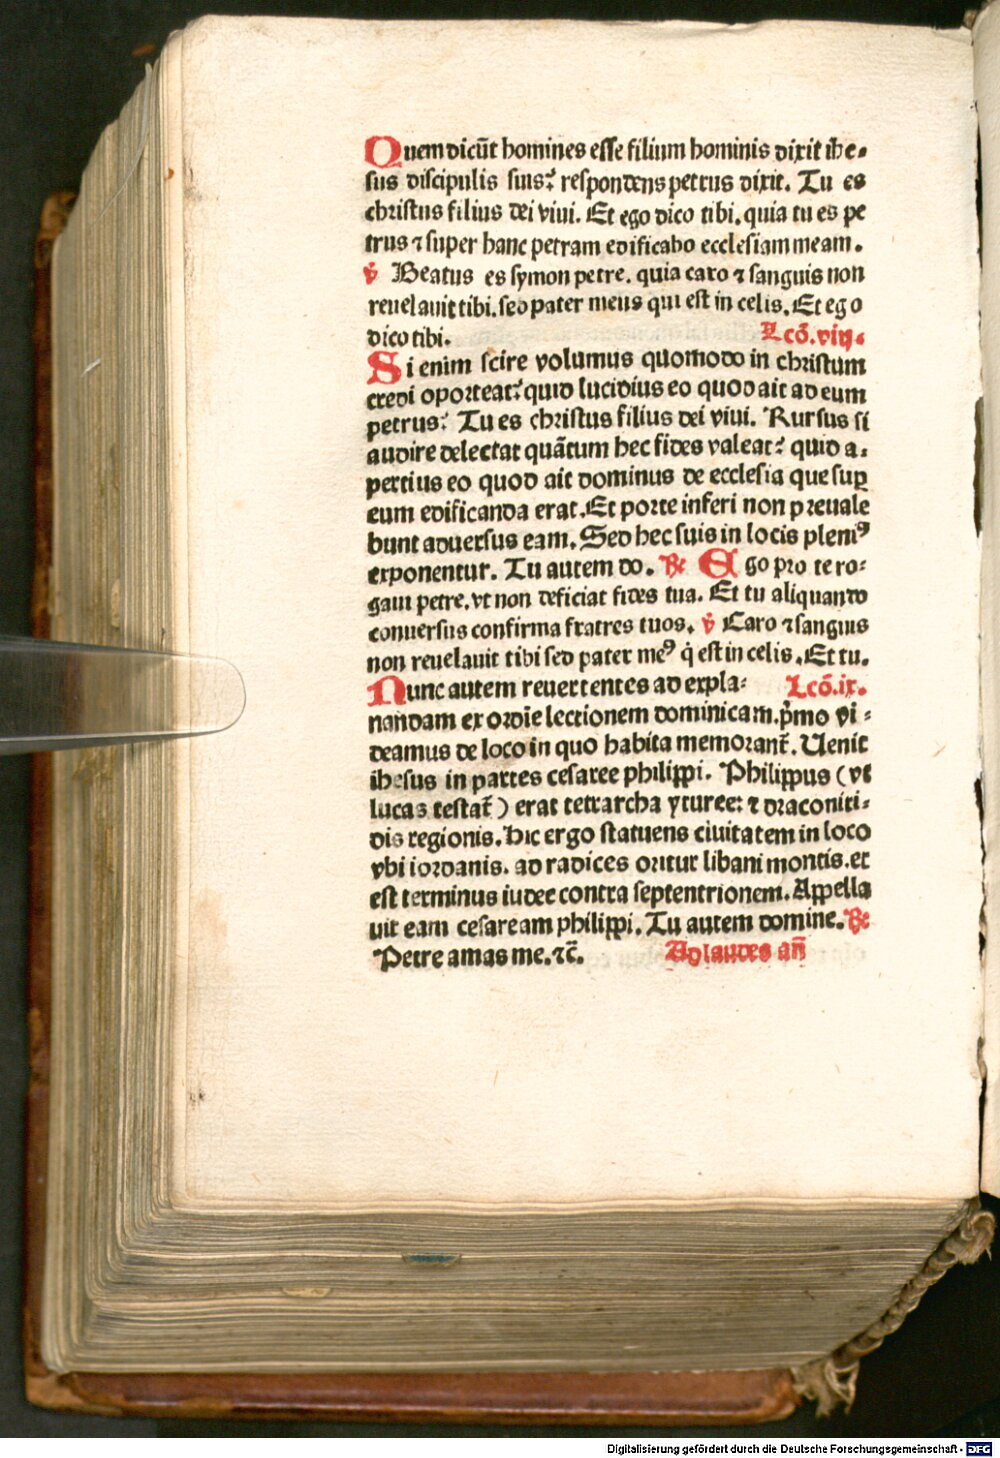 Quem dicūt homines esse filium hominis dixit ihe⸗
sus discipulis suis? respondens petrus dixit. Tu es
christus filius dei viui. Et ego dico tibi. quia tu es pe
trus ⁊ super hanc petram edificabo ecclesiam meam.
v̇ Beatus es symon petre. quia caro ⁊ sanguis non
reuelauit tibi. sed pater meus qui est in celis. Et ego
dico tibi. Lcō. viij.
Si enim scire volumus quomodo in christum
credi oporteat? quid lucidius eo quod ait ad eum
petrus? Tu es christus filius dei viui. Rursus si
audire delectat quātum hec fides valeat? quid a⸗
pertius eo quod ait dominus de ecclesia que suꝑ
eum edificanda erat. Et porte inferi non preuale
bunt aduersus eam. Sed hec suis in locis pleniꝰ
exponentur. Tu autem do. ℟ Ego pro te ro⸗
gaui petre. vt non deficiat fides tua. Et tu aliquando
conuersus confirma fratres tuos. v̇ Caro ⁊ sanguis
non reuelauit tibi sed pater meꝰ q̇ est in celis. Et tu.
Nunc autem reuertentes ad expla⸗ Lcō. ix.
nandam ex ordie lectionem dominicam. p̄mo vi⸗
deamus de loco in quo habita memorant̄. Uenit
ihesus in partes cesaree philippi. Philippus (vt
lucas testat̄) erat tetrarcha yturee: ⁊ draconiti⸗
dis regionis. Hic ergo statuens ciuitatem in loco
vbi iordanis. ad radices oritur libani montis. et
est terminus iudee contra septentrionem. Appella
uit eam cesaream philippi. Tu autem domine. ℟
Petre amas me. ⁊c̄. Ad laudes an̄
Digitalisierung gefördert durch die Deutsche Forschungsgemeinschaft - DFG